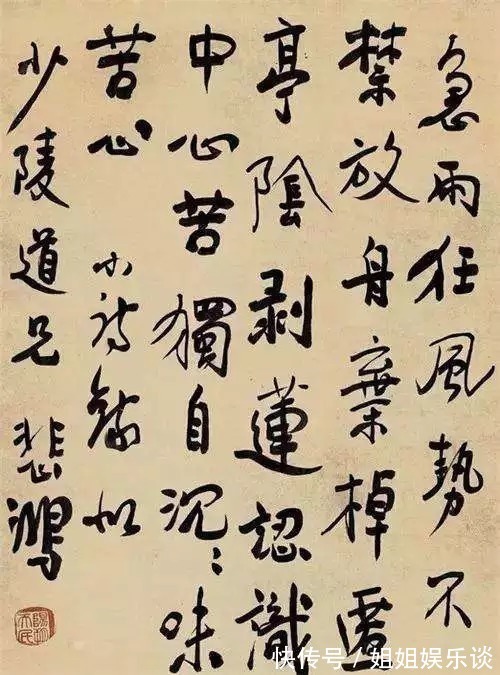 急雨狂風勢不
禁放舟棄棹匿
亭陰剥蓮認識
中心苦獨自沉〻味
苦心 小詩錄似
少陵道兄 悲鴻
陽朔天民
快传号/姐姐娱乐谈